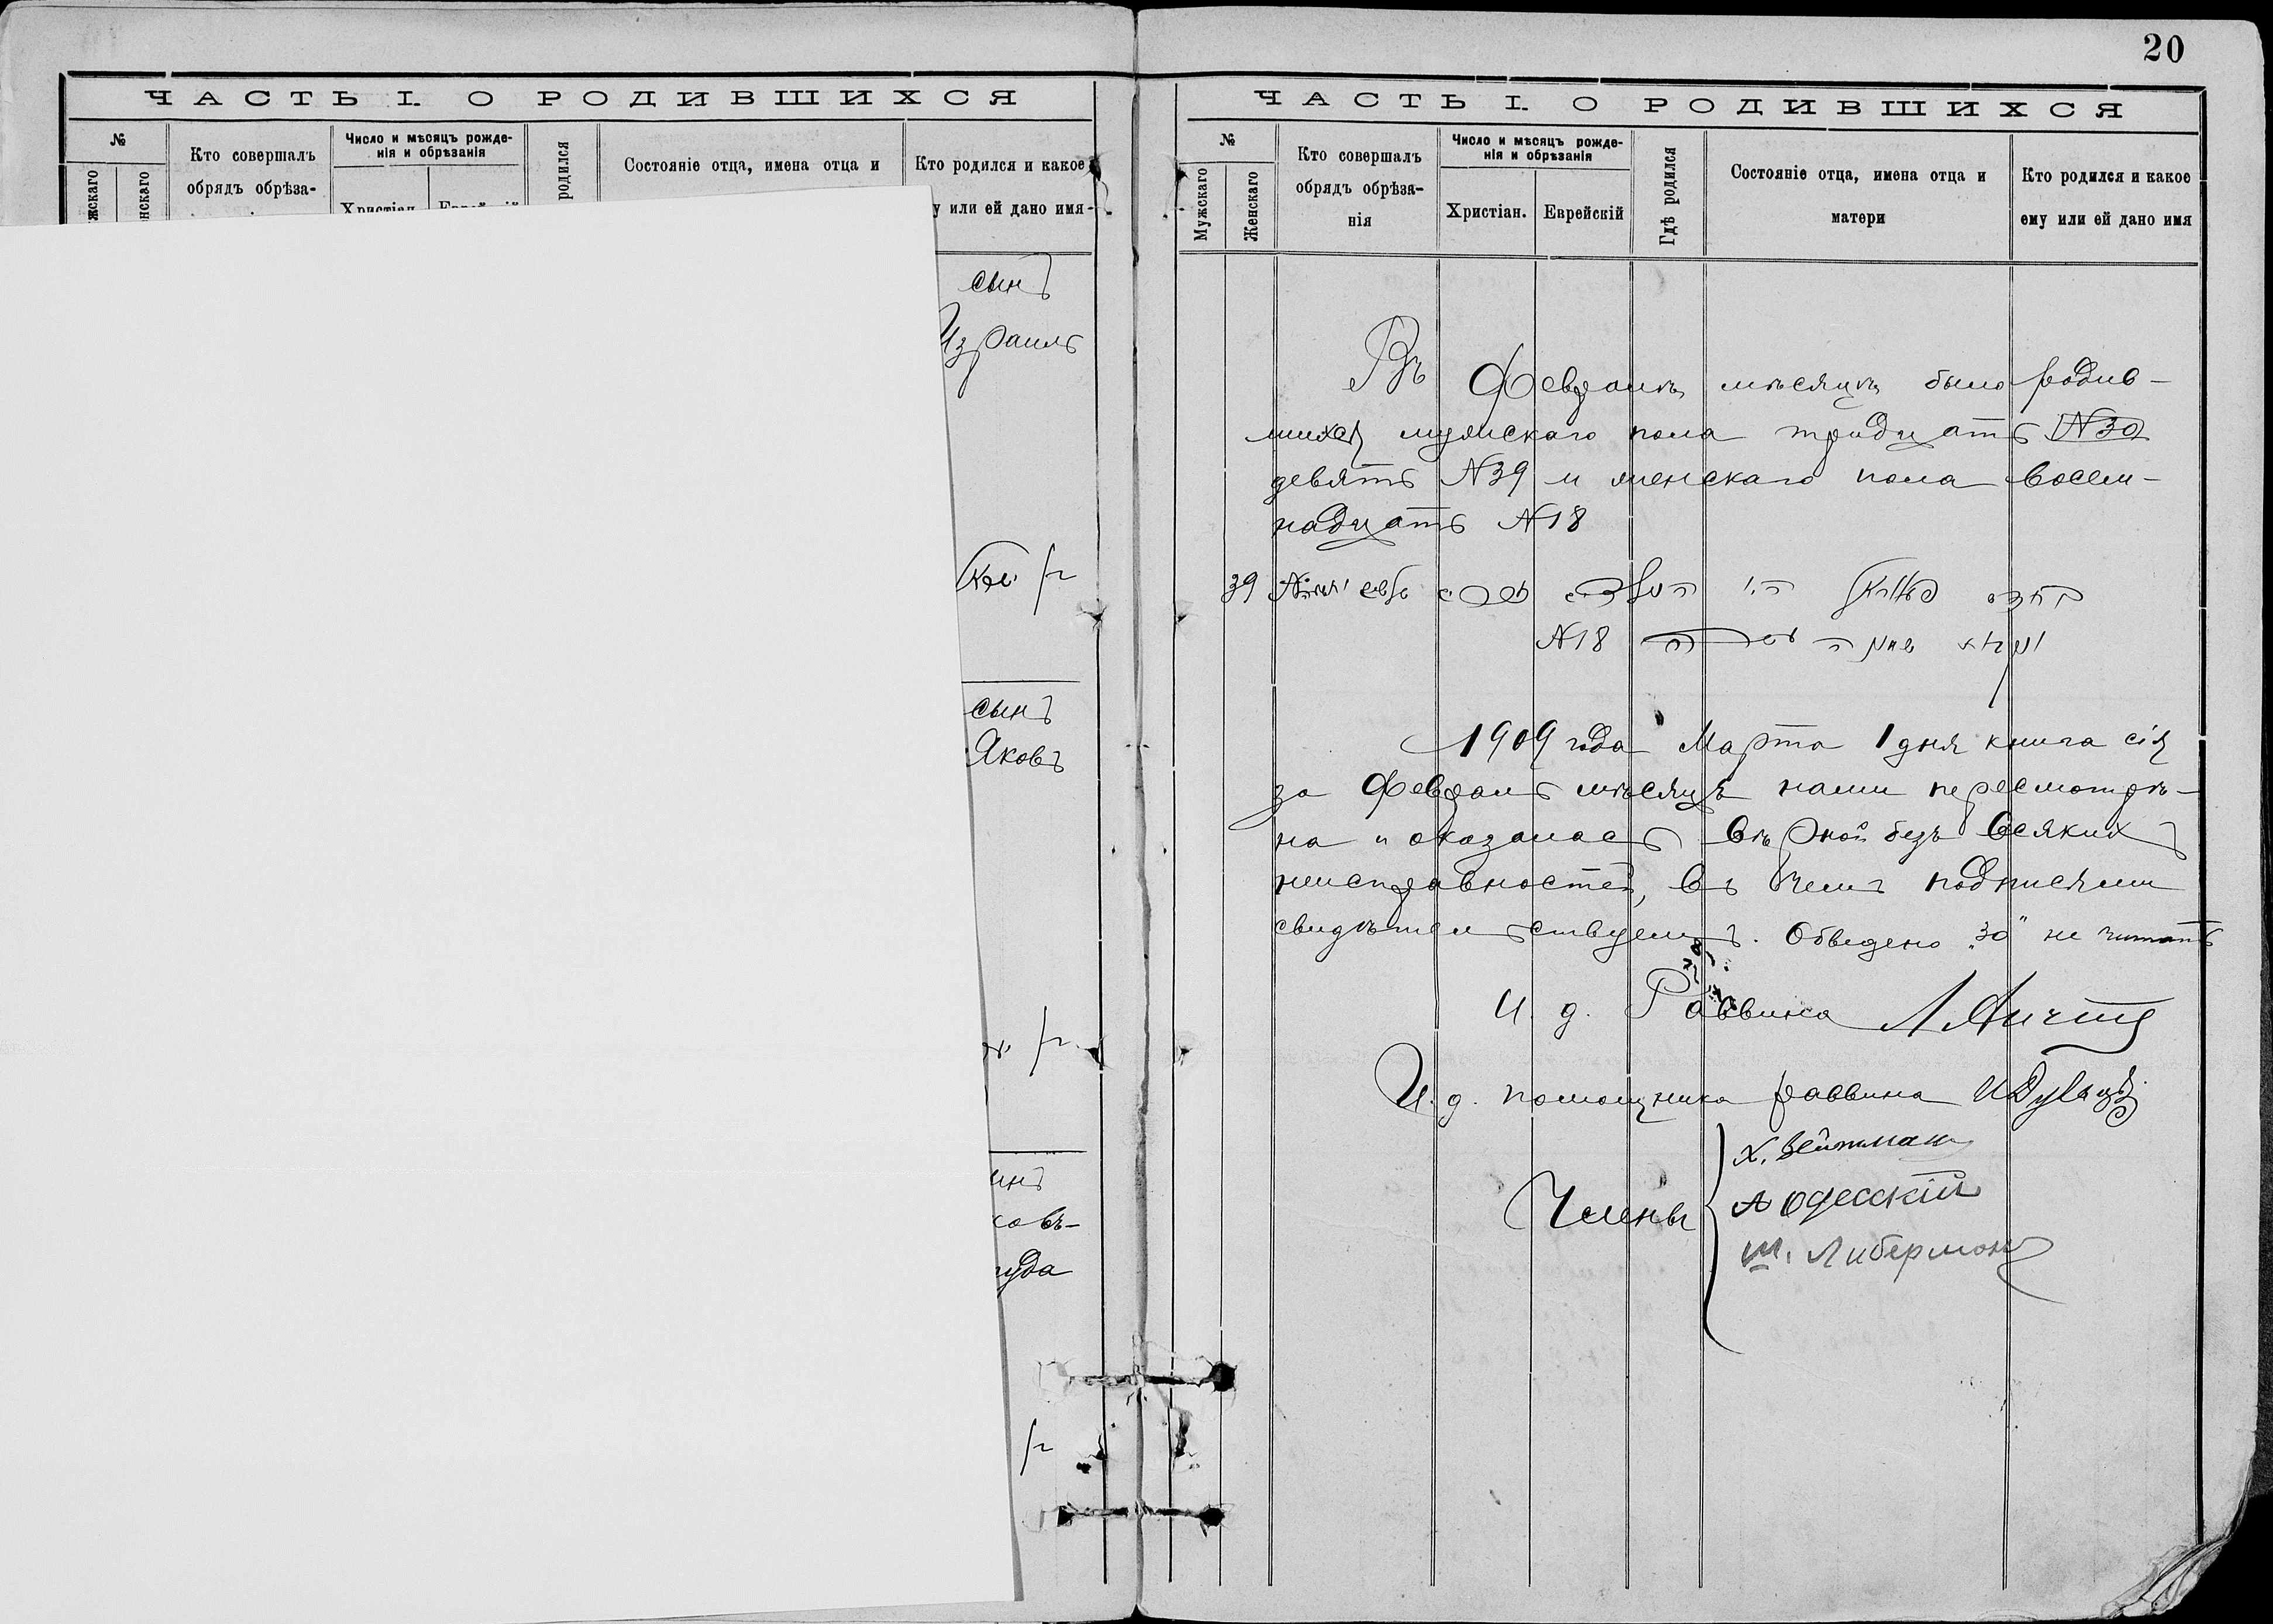 ЧАСТЬ I. О РОДИВШИХСЯ
№
жскаго
нскаго
Кто совершалъ
обрядъ обрѣза-
Число и мѣсяцъ рожде-
нія и обрѣзанія
Христіан
родился
Состояніе отца, имена отца и
Кто родился и какое
у или ей дано имя
сынъ
Израиль
сынъ
Яковъ
инъ
ковъ-
уда
20
ЧАСТЬ I. О РОДИВШИХСЯ
№
Мужскаго
Женскаго
Кто совершалъ
обрядъ обрѣза-
нія
Число и мѣсяцъ рожде-
нія и обрѣзанія
Христіан.
Еврейскій
Гдѣ родился
Состояніе отца, имена отца и
матери
Кто родился и какое
ему или ей дано имя
Въ Февралѣ мѣсяцѣ было родив-
шихся мужскаго пола тридцать N30
девять N39 и женскаго пола восем-
надцать N18
39
N18
1909 года Марта 1 дня книга сія
за Февраль мѣсяцъ нами пересмотрѣ-
на и оказалась вѣрной безъ всякихъ
неисправностей, въ чемъ подписями
свидѣтельствуемъ. Обведено „30" не читать
И. д. Раввина
И. д. помощника раввина
Члены
Х. Вейтман
А Одесскій
Ш. Либерман